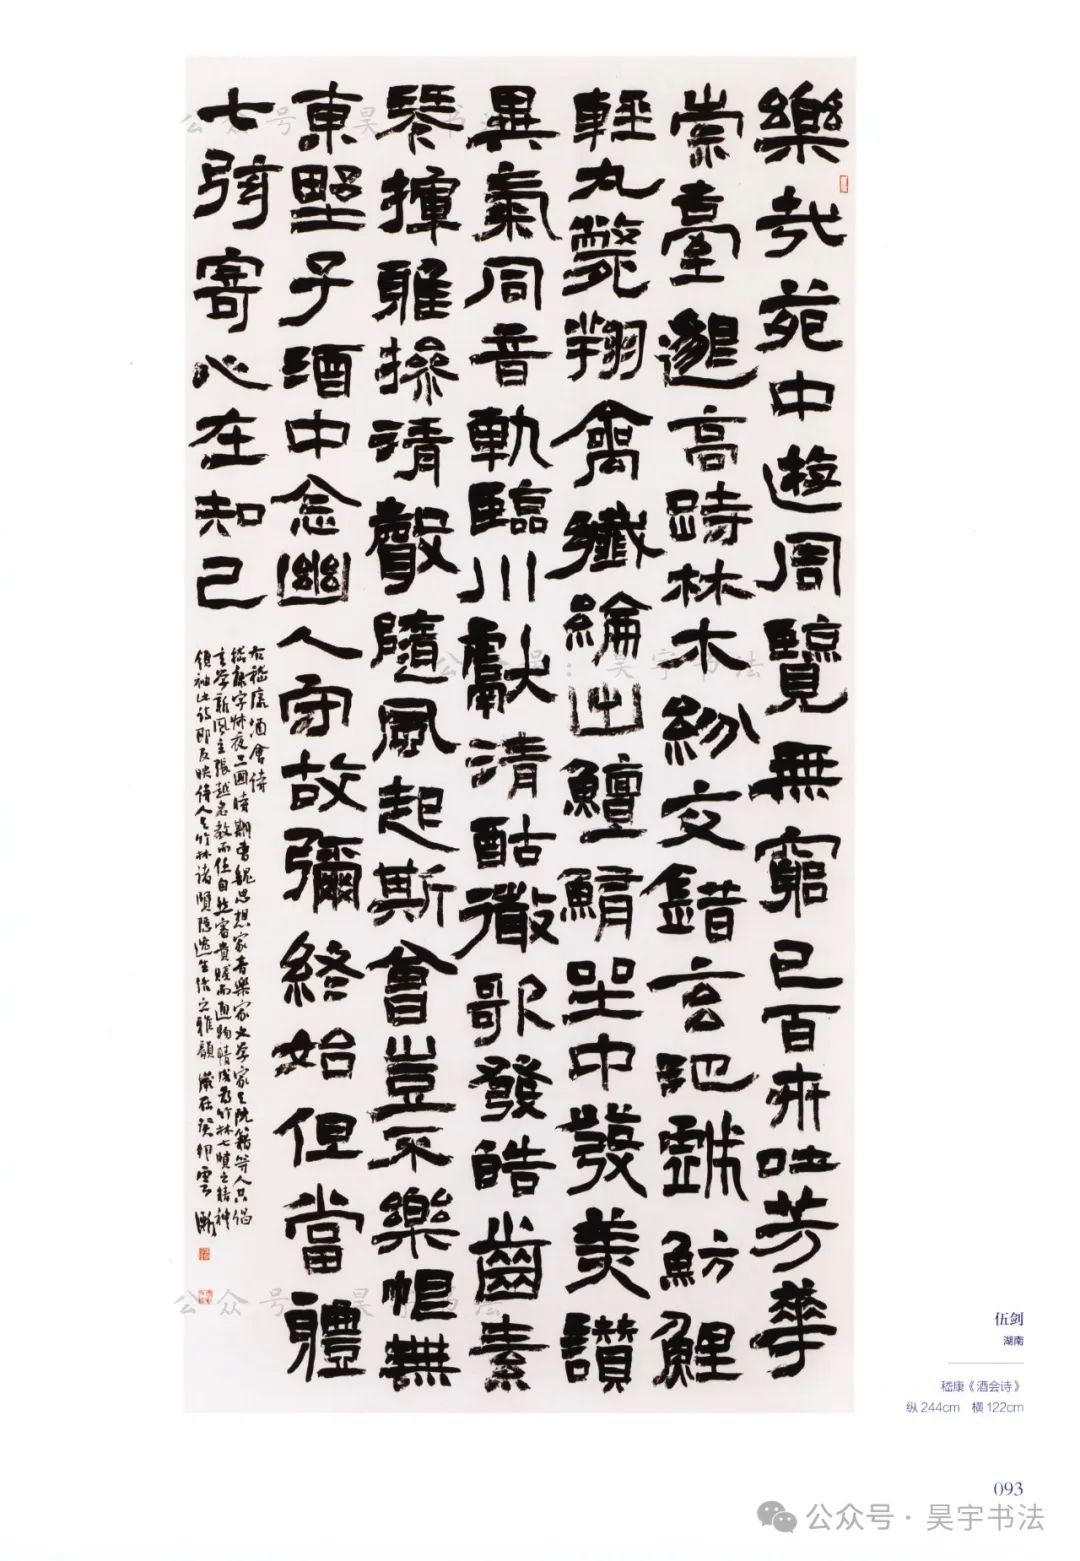 樂哉苑中遊周覽無窮已百卉吐芳華
崇臺邈高跱林木紛交錯玄池戲魴鯉
輕丸斃翔禽纖綸出鱣鮪坐中發美讚
異氣同音軌臨川獻清酤微歌發皓齒素
琴揮雅操清聲隨風起斯會豈不樂恨無
東野子酒中念幽人守故彌終始但當體
七弦寄心在知己
右嵇康酒會詩
嵇康字叔夜三國時期曹魏思想家音樂家文學家與阮籍等人共倡
玄學新風主張越名教而任自然審貴賤而通物情成為竹林七賢之精神
領袖此詩即反映詩人與竹林諸賢隱逸生活之雅韻 歲在癸卯雲
伍剑
湖南
嵇康《酒会诗》
纵244cm 横122cm
093
公众号·昊宇书法
公众号：昊宇书法
公众号：昊宇书法
公众号：昊宇书法